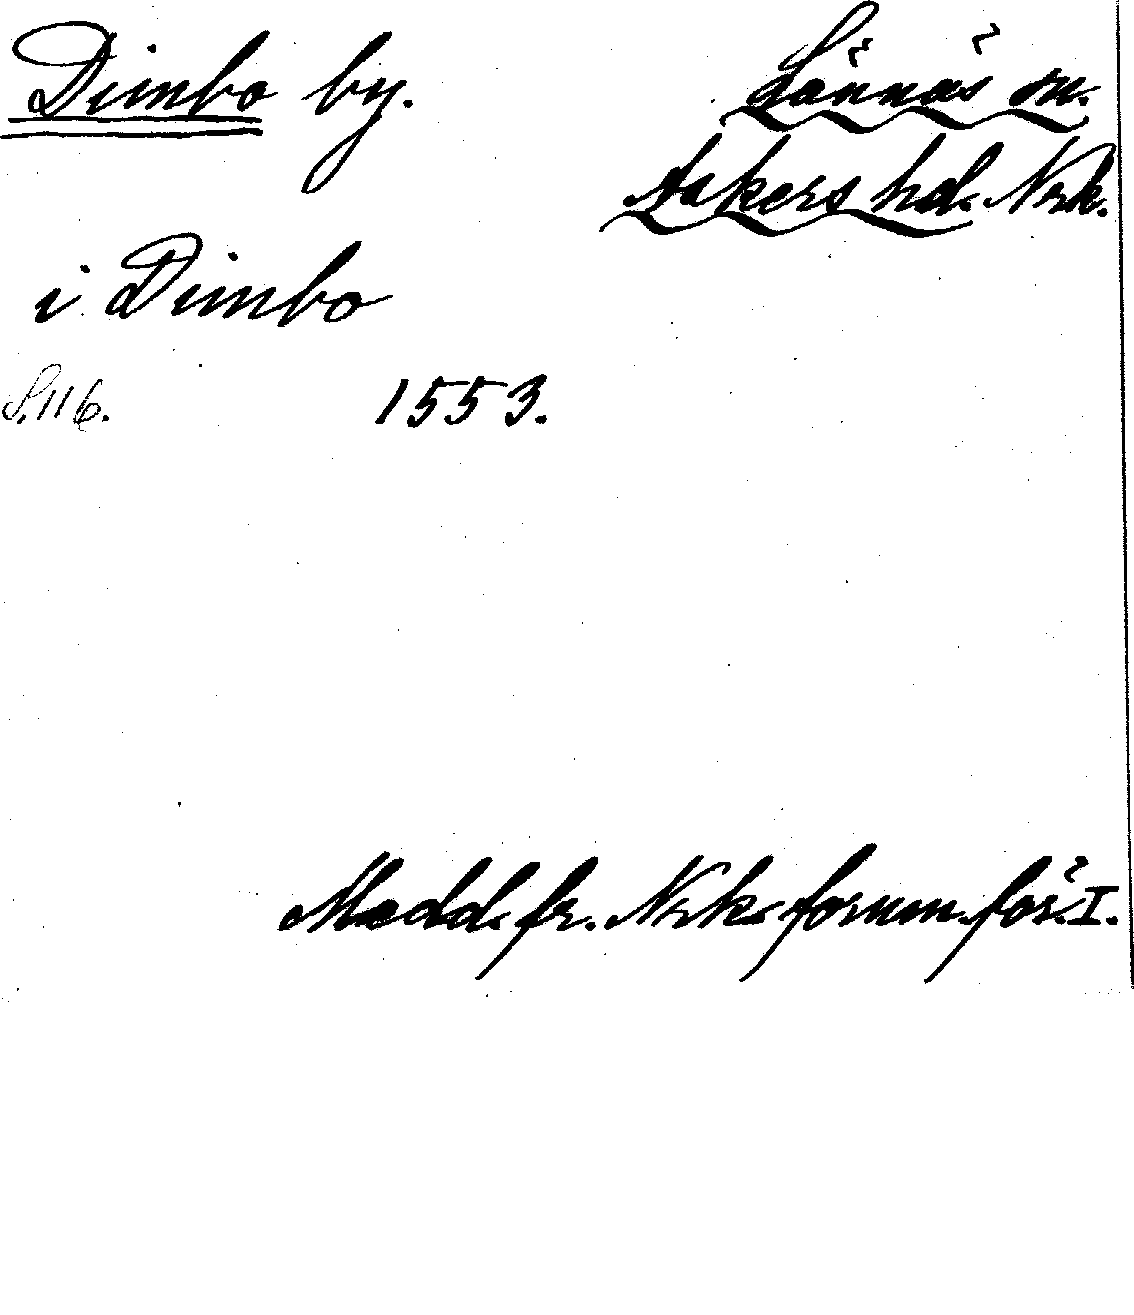 Dimbo by.
Lännäs sn.
Askers hd. Nrk.
i Dimbo
S. 116. 1553.
Medd. fr. Nrks fornm.för. I.